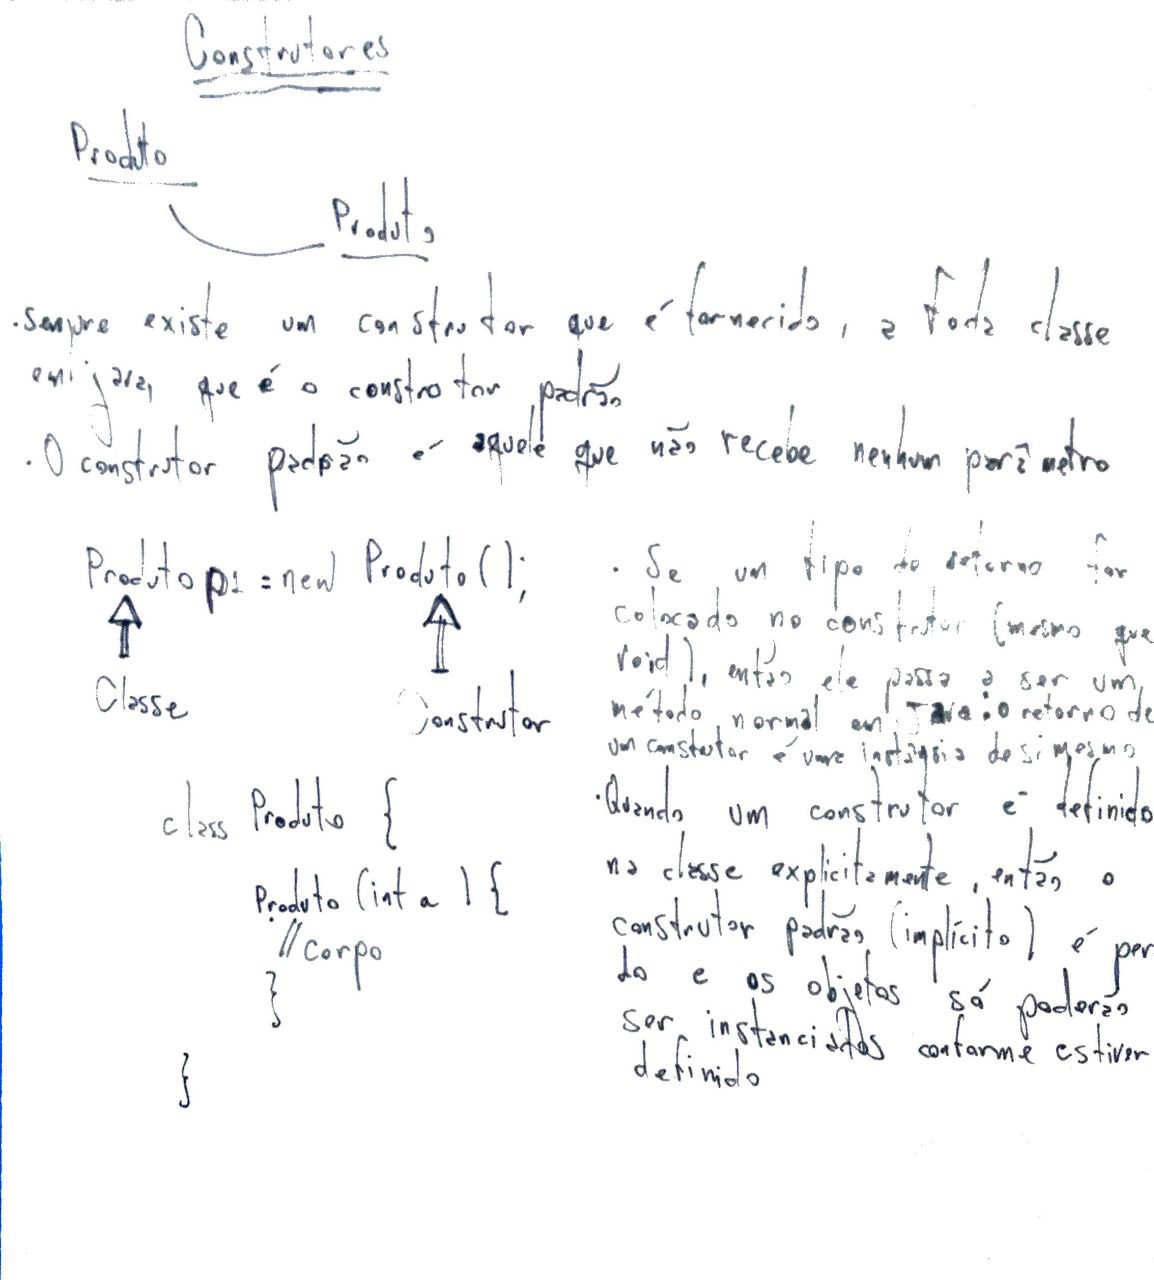 Construtores
Produto
Produto
.Sempre existe um construtor que é fornecido, a Toda classe
em java, que é o construtor padrão
.O construtor padrão é aquele que não recebe nenhum parâmetro
Produto p1 = new Produto();
Classe
Construtor
class Produto {
Produto (int a) {
//corpo
}
}
. Se um tipo de retorno for
colocado no construtor (mesmo que
void), então ele passa a ser um
método normal em Java: o retorno de
um construtor é uma instância de si mesmo
.Quando um construtor é definido
na classe explicitamente, então o
construtor padrão (implícito) é per
do e os objetos só poderão
ser instanciados conforme estiver
definido